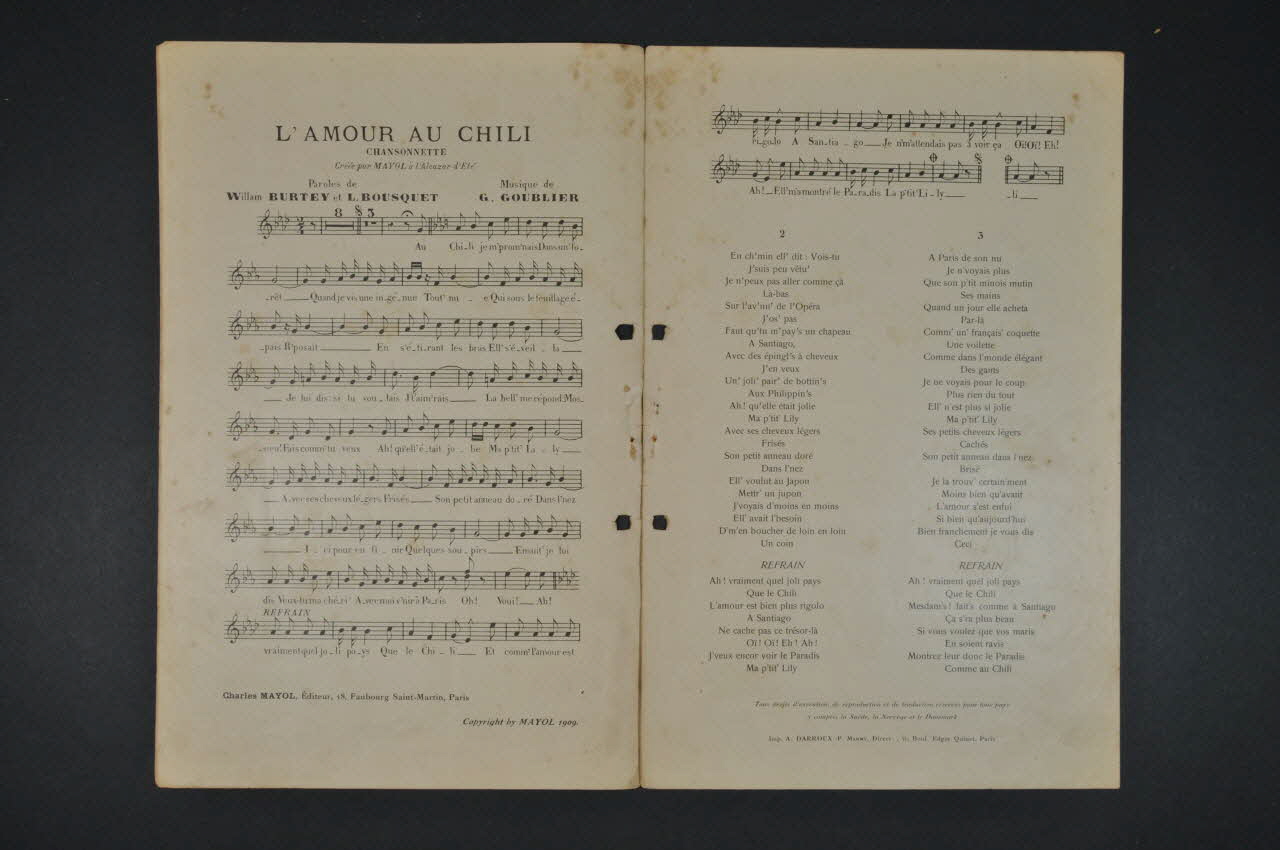 L'AMOUR AU CHILI
CHANSONNETTE
Créée par MAYOL à l'Alcazar d'Eté
Paroles de
Willam BURTEY et L. BOUSQUET
Musique de
G. GOUBLIER
8 3
Au Chi-li je m'prom'nais Dans un' fo-
-rêt Quand je vis une in-gé-nue Tout' nu-e Qui sous le feuillage é-
-pais R'posait En s'é-ti-rant les bras Ell' s'é-veil-la
Je lui dis: si tu vou-lais J't'aim'rais La bell' me répond: Mos-
-sieu! Fais comm' tu veux Ah! qu'ell' é-tait jo-lie Ma p'tit' Li-ly
A-vec ses cheveux lé-gers Frisés Son petit anneau do-ré Dans l'nez
I-ci pour en fi-nir Quelques sou-pirs Ensuit' je lui
dis Veux-tu ma ché-ri' A-vec moi v'nir à Pa-ris Oh! Voui! Ah!
REFRAIN
vraiment quel jo-li pa-ys Que le Chi-li Et comm' l'amour est
Charles MAYOL, Éditeur, 18, Faubourg Saint-Martin, Paris
Copyright by MAYOL 1909.
ri-go-lo A San-tia-go Je n'm'attendais pas à voir ça Oï! Oï! Eh!
Ah! Ell' m'a montré le Pa-ra-dis La p'tit' Li-ly -li
2
En ch'min ell' dit : Vois-tu
J'suis peu vêtu'
Je n'peux pas aller comme çà
Là-bas
Sur l'av'nu' de l'Opéra
J'os' pas
Faut qu'tu m'pay's un chapeau
A Santiago,
Avec des épingl's à cheveux
J'en veux
Un' joli' pair' de bottin's
Aux Philippin's
Ah! qu'elle était jolie
Ma p'tit' Lily
Avec ses cheveux légers
Frisés
Son petit anneau doré
Dans l'nez
Ell' voulut au Japon
Mettr' un jupon
J'voyais d'moins en moins
Ell' avait l'besoin
D'm'en boucher de loin en loin
Un coin
REFRAIN
Ah! vraiment quel joli pays
Que le Chili
L'amour est bien plus rigolo
A Santiago
Ne cache pas ce trésor-là
Oï! Oï! Eh! Ah!
J'veux encor voir le Paradis
Ma p'tit' Lily
3
A Paris de son nu
Je n'voyais plus
Que son p'tit minois mutin
Ses mains
Quand un jour elle acheta
Par-là
Comm' un' français' coquette
Une voilette
Comme dans l'monde élégant
Des gants
Je ne voyais pour le coup
Plus rien du tout
Ell' n'est plus si jolie
Ma p'tit' Lily
Ses petits cheveux légers
Cachés
Son petit anneau dans l'nez
Brisé
Je la trouv' certain'ment
Moins bien qu'avant
L'amour s'est enfui
Si bien qu'aujourd'hui
Bien franchement je vous dis
Ceci
REFRAIN
Ah! vraiment quel joli pays
Que le Chili
Mesdam's! fait's comme à Santiago
Ça s'ra plus beau
Si vous voulez que vos maris
En soient ravis
Montrez leur donc le Paradis
Comme au Chili
Tous droits d'exécution, de reproduction et de traduction réservés pour tous pays
y compris la Suède, la Norvège et le Danemark
Imp. A. DARROUX Direct. Boul. Edgar Quinet, Paris